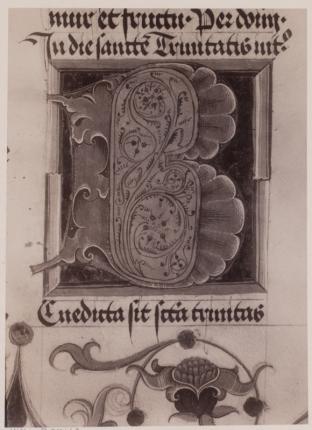 mur et fructu. Per dom̄.
In die sancte Trinitatis int.º
B
Enedicta sit sctā trinitas